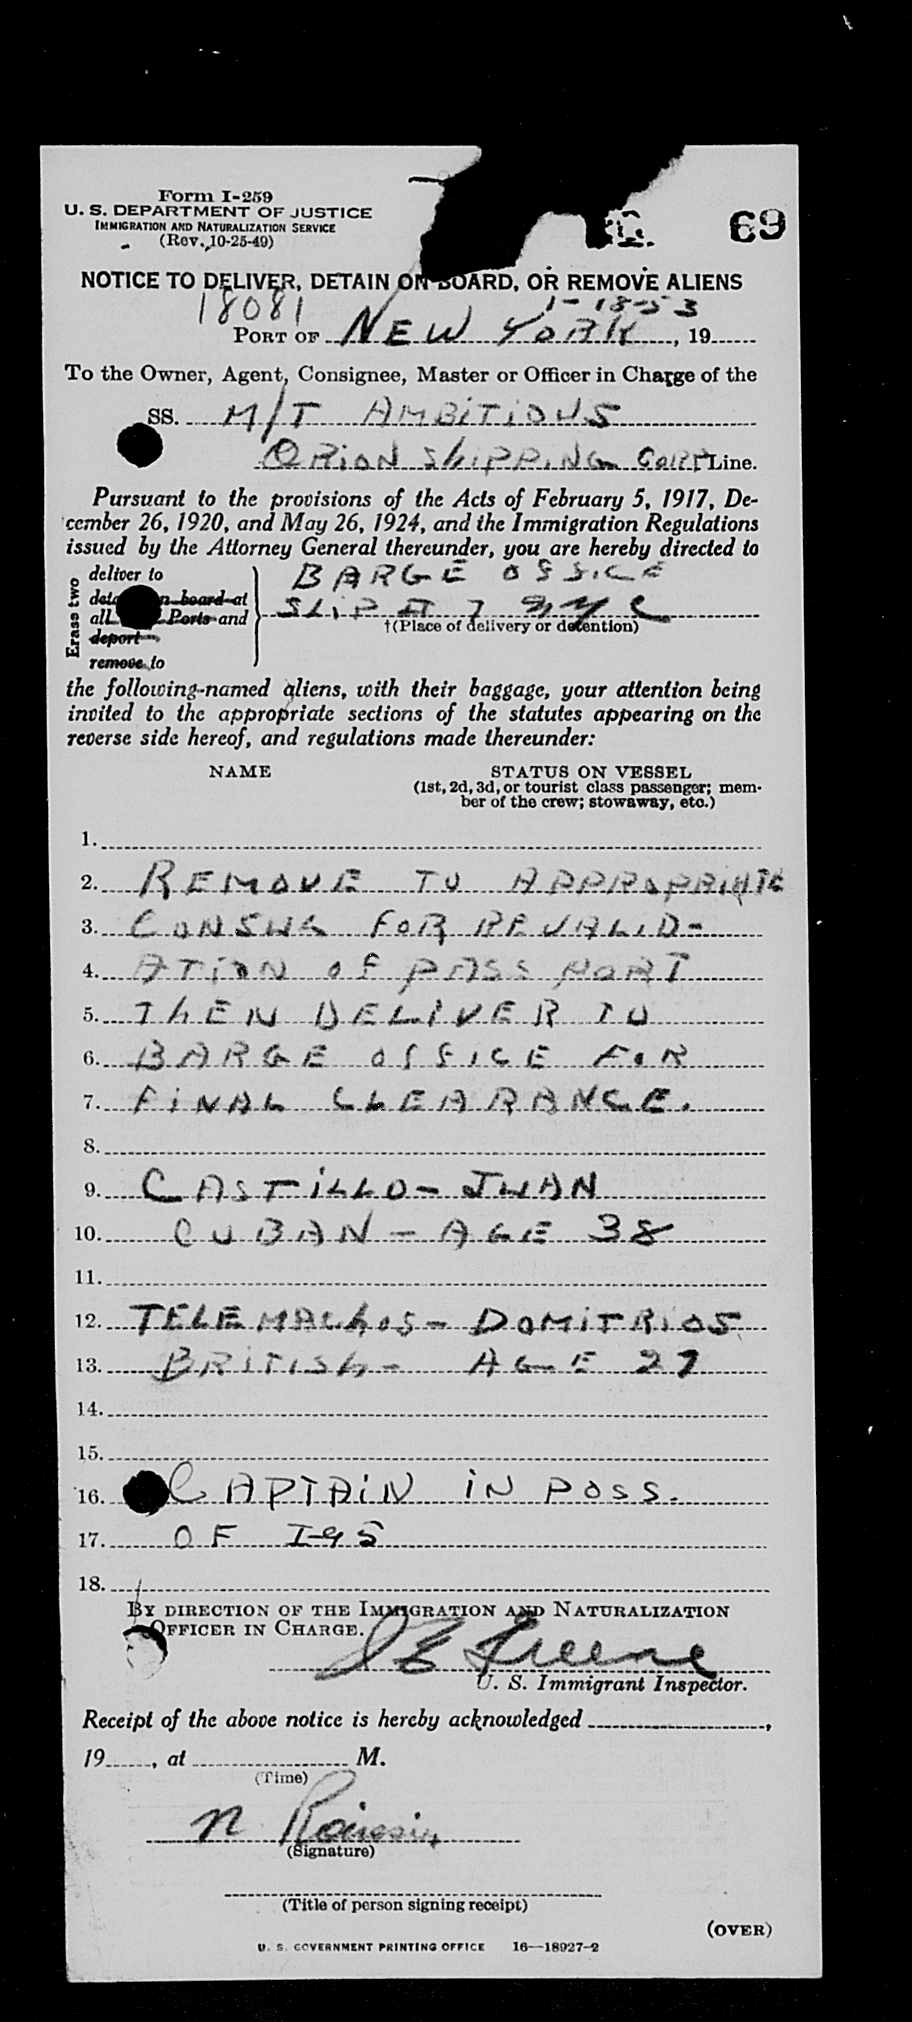 Form I-259
U. S. DEPARTMENT OF JUSTICE
IMMIGRATION AND NATURALIZATION SERVICE
(Rev. 10-25-49)
69
NOTICE TO DELIVER, DETAIN ON BOARD, OR REMOVE ALIENS
18081 1-18-53
PORT OF NEW YORK, 19
To the Owner, Agent, Consignee, Master or Officer in Charge of the
SS. M/T AMBITIOUS
ORION SHIPPING CORP Line.
Pursuant to the provisions of the Acts of February 5, 1917, De-
cember 26, 1920, and May 26, 1924, and the Immigration Regulations
issued by the Attorney General thereunder, you are hereby directed to
Erase two
deliver to BARGE OFFICE
on board at SLIP # 7 NYC
all Ports and †(Place of delivery or detention)
deport
remove to
the following-named aliens, with their baggage, your attention being
invited to the appropriate sections of the statutes appearing on the
reverse side hereof, and regulations made thereunder:
NAME STATUS ON VESSEL
(1st, 2d, 3d, or tourist class passenger; mem-
ber of the crew; stowaway, etc.)
1.
2. REMOVE TO APPROPRIATE
3. CONSUL FOR REVALID-
4. ATION OF PASS PORT
5. THEN DELIVER TO
6. BARGE OFFICE FOR
7. FINAL CLEARANCE.
8.
9. CASTILLO - JUAN
10. CUBAN - AGE 38
11.
12. TELEMACHOS - DOMITRIOS
13. BRITISH - AGE 27
14.
15.
16. CAPTAIN IN POSS.
17. OF I-95
18.
BY DIRECTION OF THE IMMIGRATION AND NATURALIZATION
OFFICER IN CHARGE.
J E Greene
U. S. Immigrant Inspector.
Receipt of the above notice is hereby acknowledged,
19, at M.
(Time)
N
(Signature)
(Title of person signing receipt)
(OVER)
U. S. GOVERNMENT PRINTING OFFICE 16—18927-2